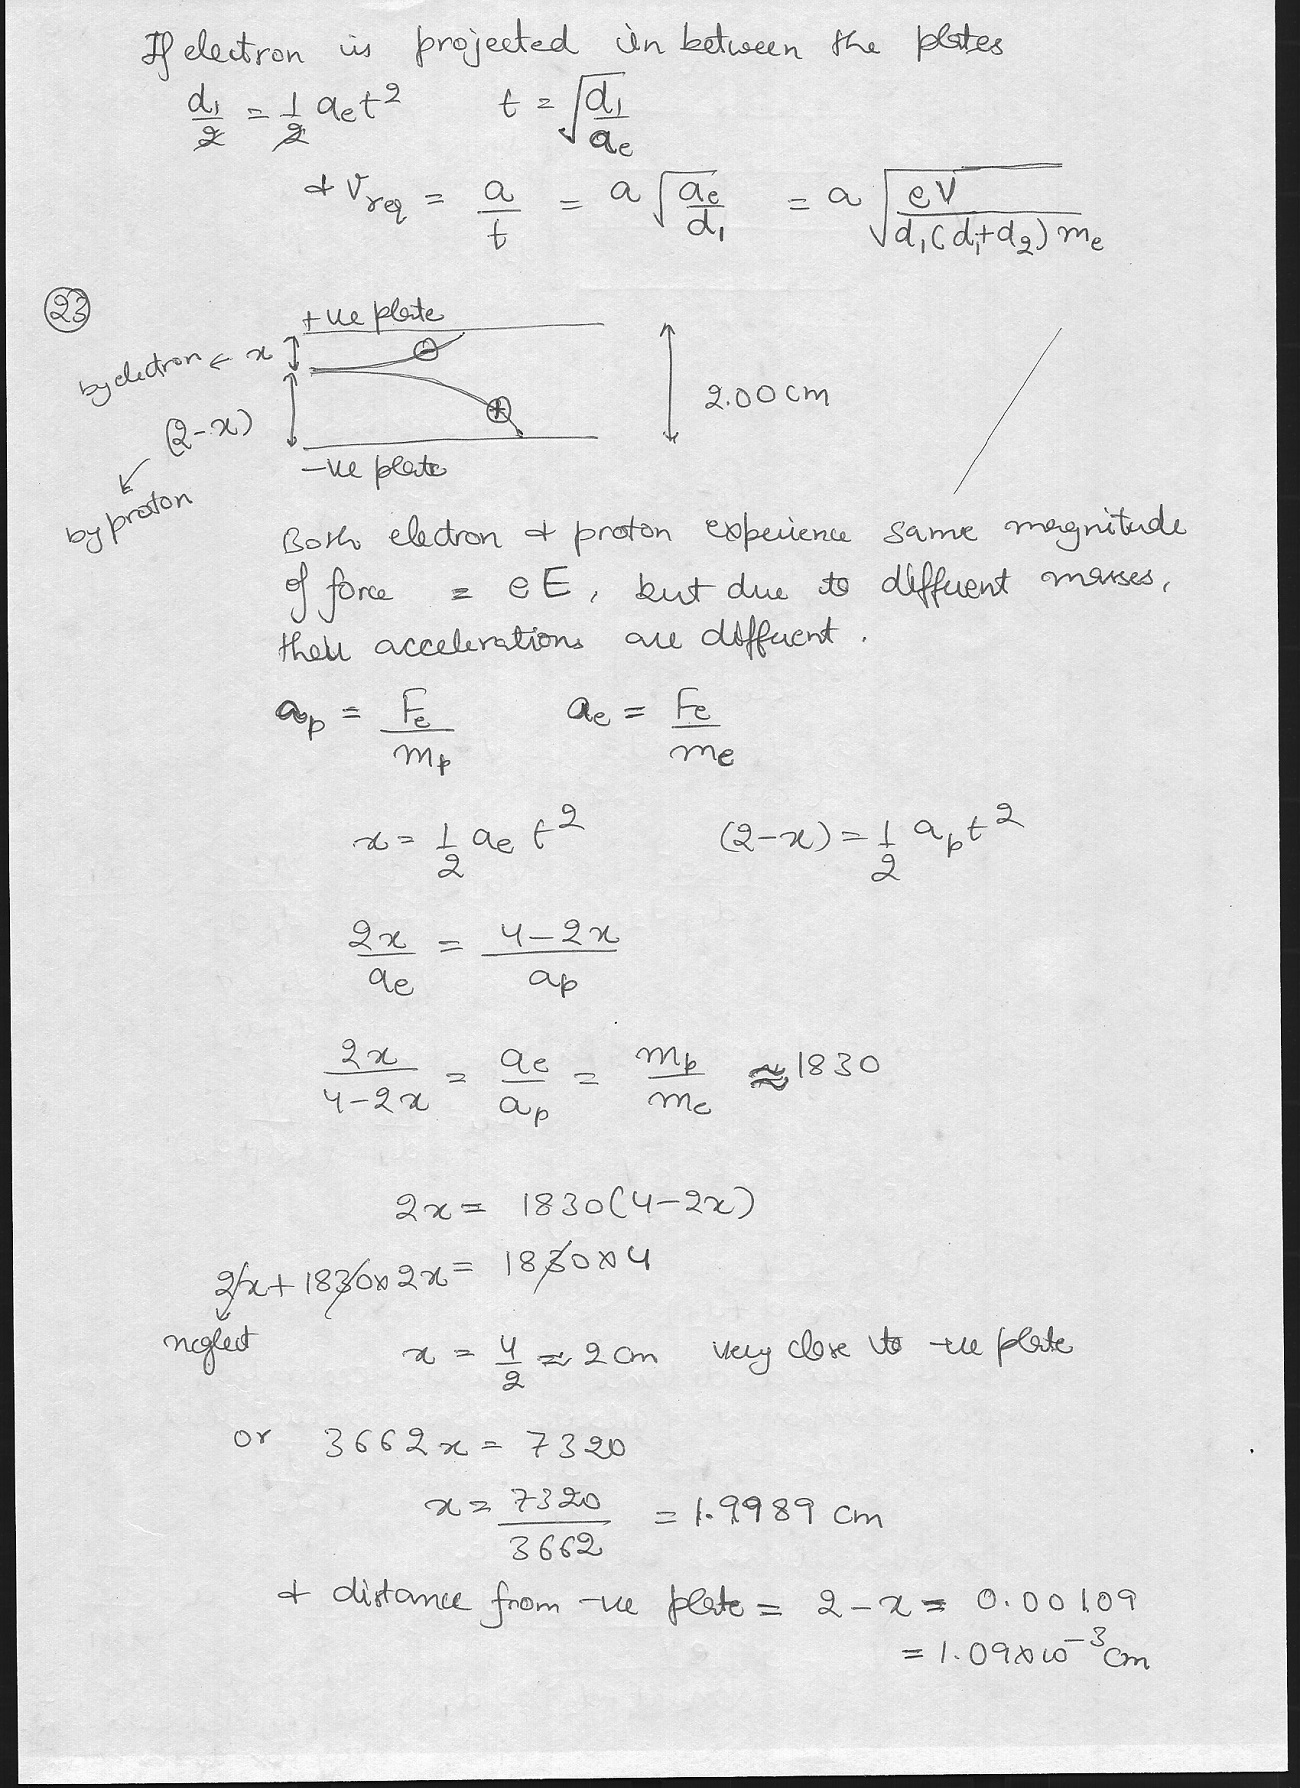 If electron is projected in between the plates
d₁/2 = 1/2 aₑt² t = √(d₁/aₑ)
& V_req = a/t = a√(aₑ/d₁) = a√(eV/(d₁(d₁+d₂)mₑ))
23
+ve plate
by electron ← x
2.00 cm
(2-x)
-ve plate
by proton
Both electron & proton experience same magnitude
of force = eE, but due to different masses,
their accelerations are different.
aₚ = Fₑ/mₚ aₑ = Fₑ/mₑ
x = 1/2 aₑ t² (2-x) = 1/2 aₚt²
2x/aₑ = (4-2x)/aₚ
2x/(4-2x) = aₑ/aₚ = mₚ/mₑ ≈ 1830
2x = 1830(4-2x)
2x + 1830×2x = 1830×4
neglect
x = 4/2 ≈ 2 cm very close to -ve plate
or 3662x = 7320
x = 7320/3662 = 1.9989 cm
& distance from -ve plate = 2-x = 0.00109
= 1.09×10⁻³ cm